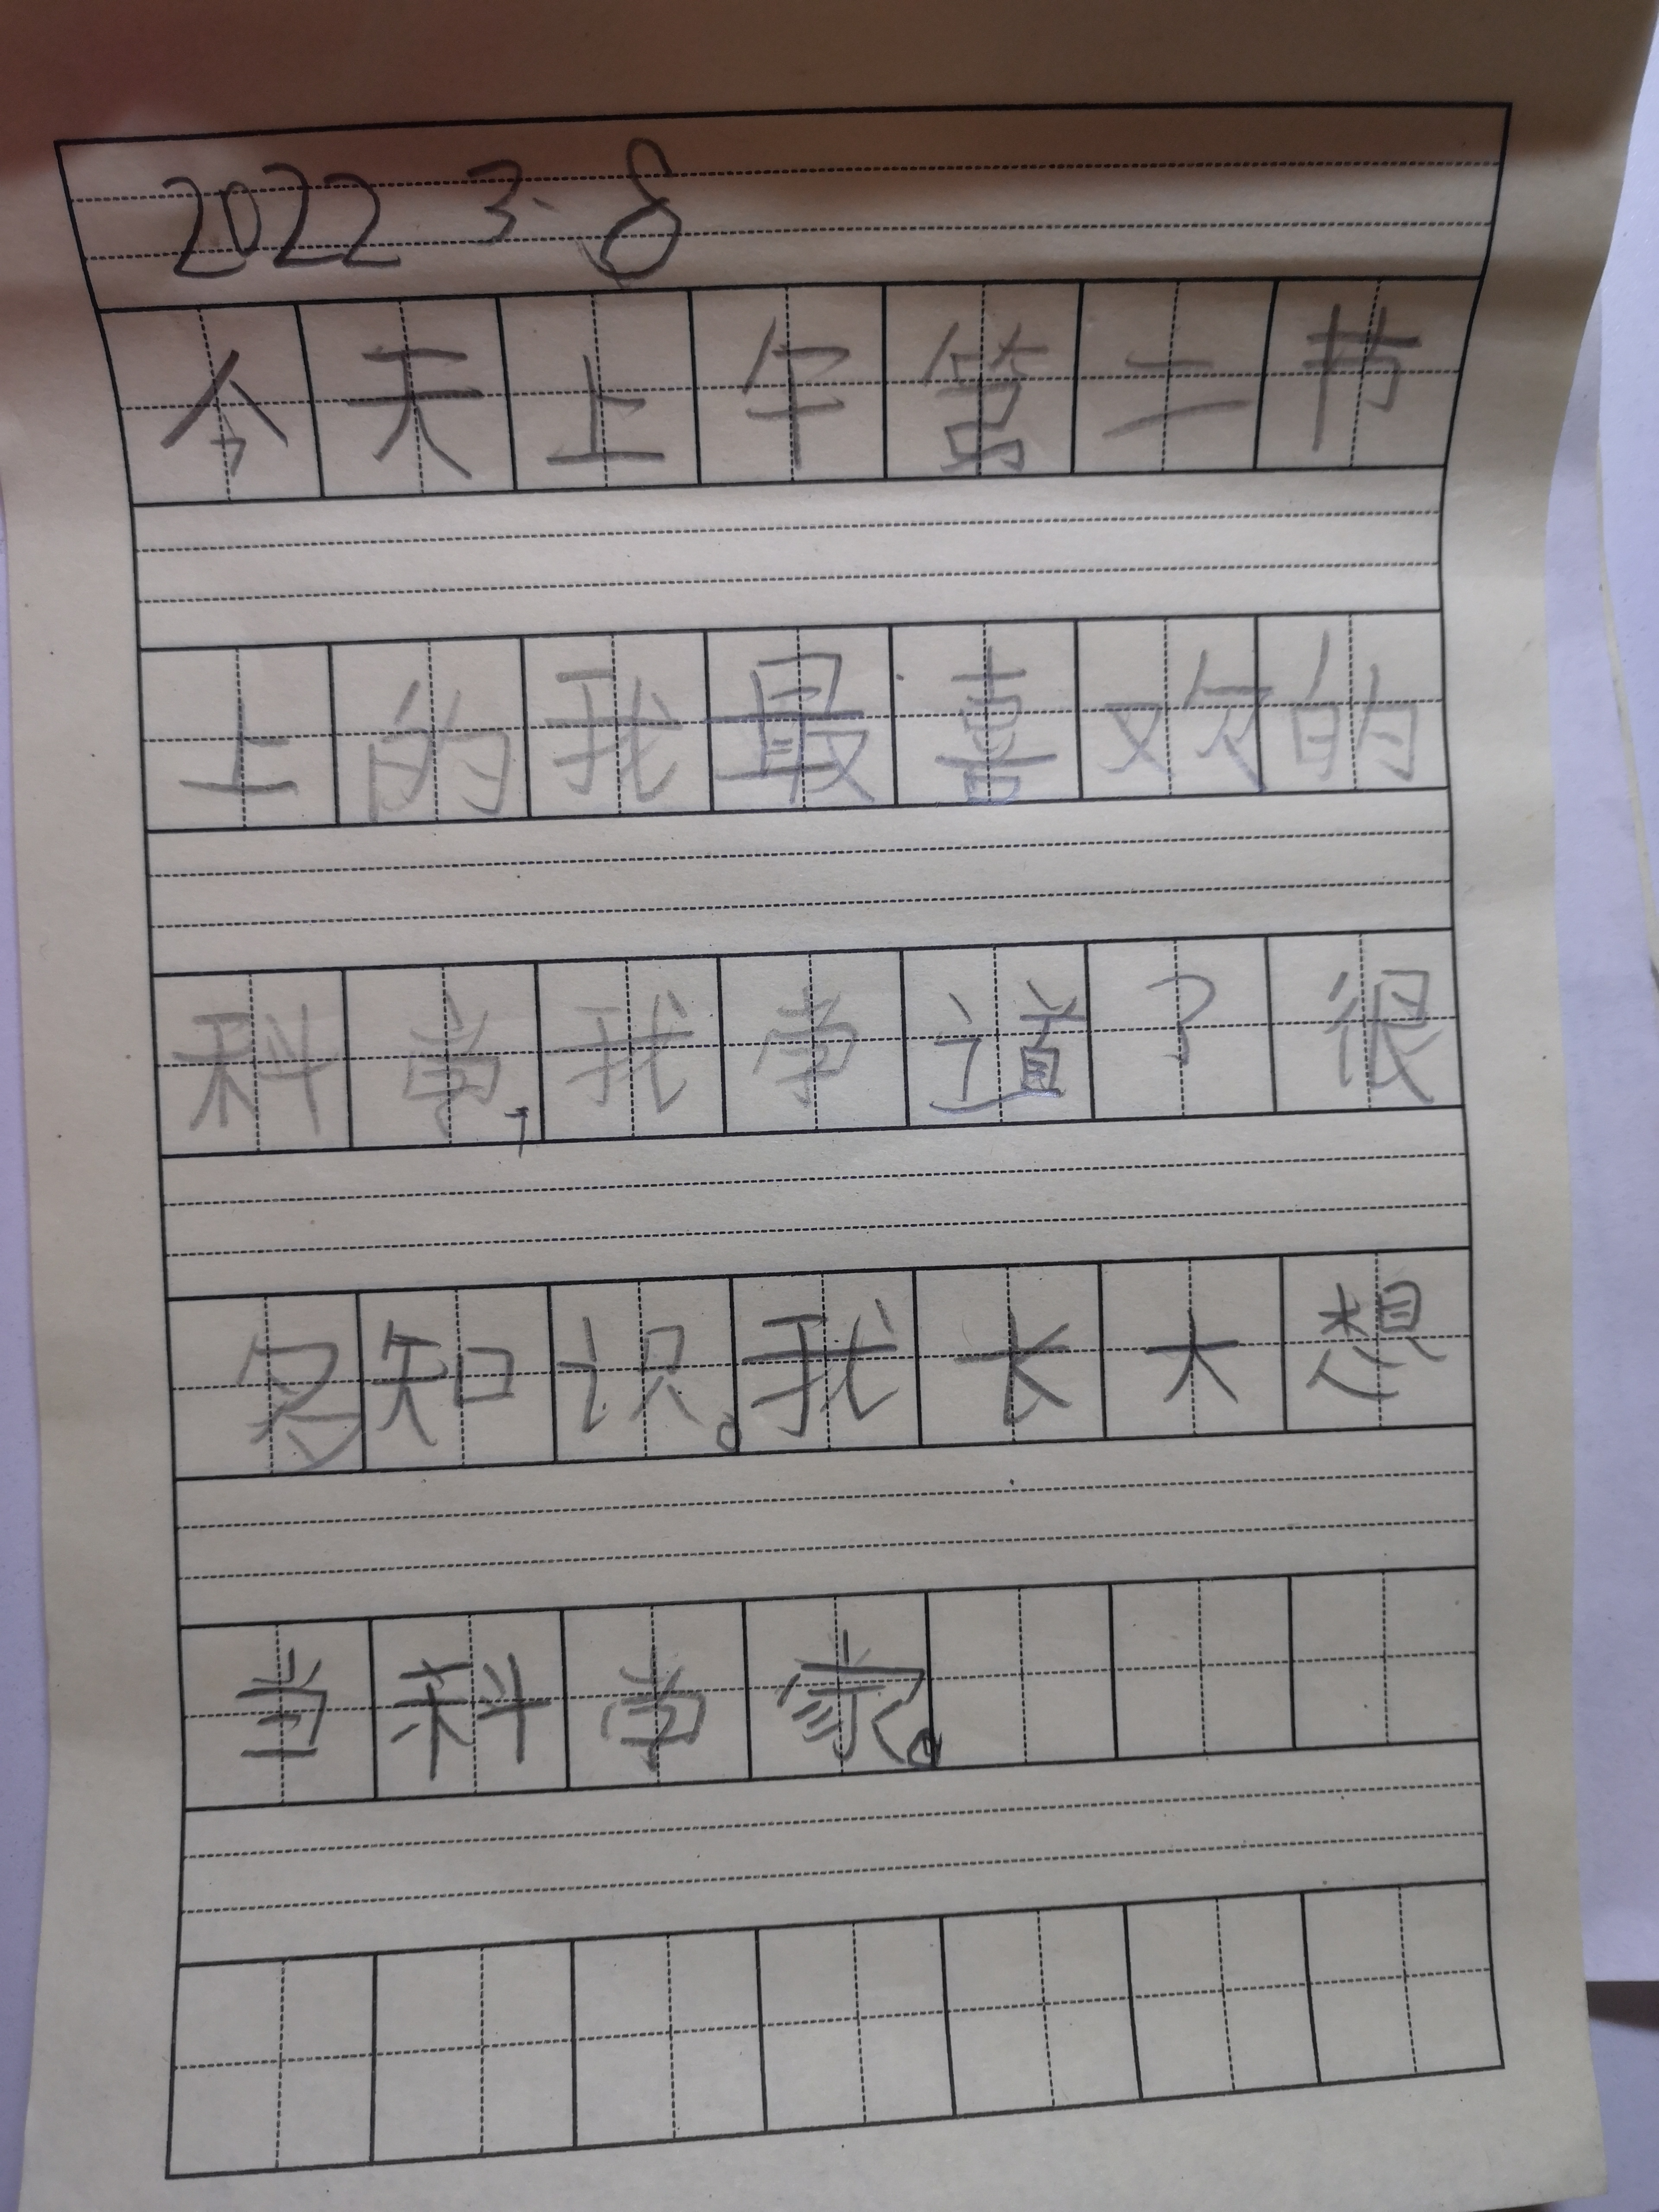 2022 3·8
今天上午第二节
上的我最喜欢的
科学,我学道了很
多知识。我长大想
当科学家。